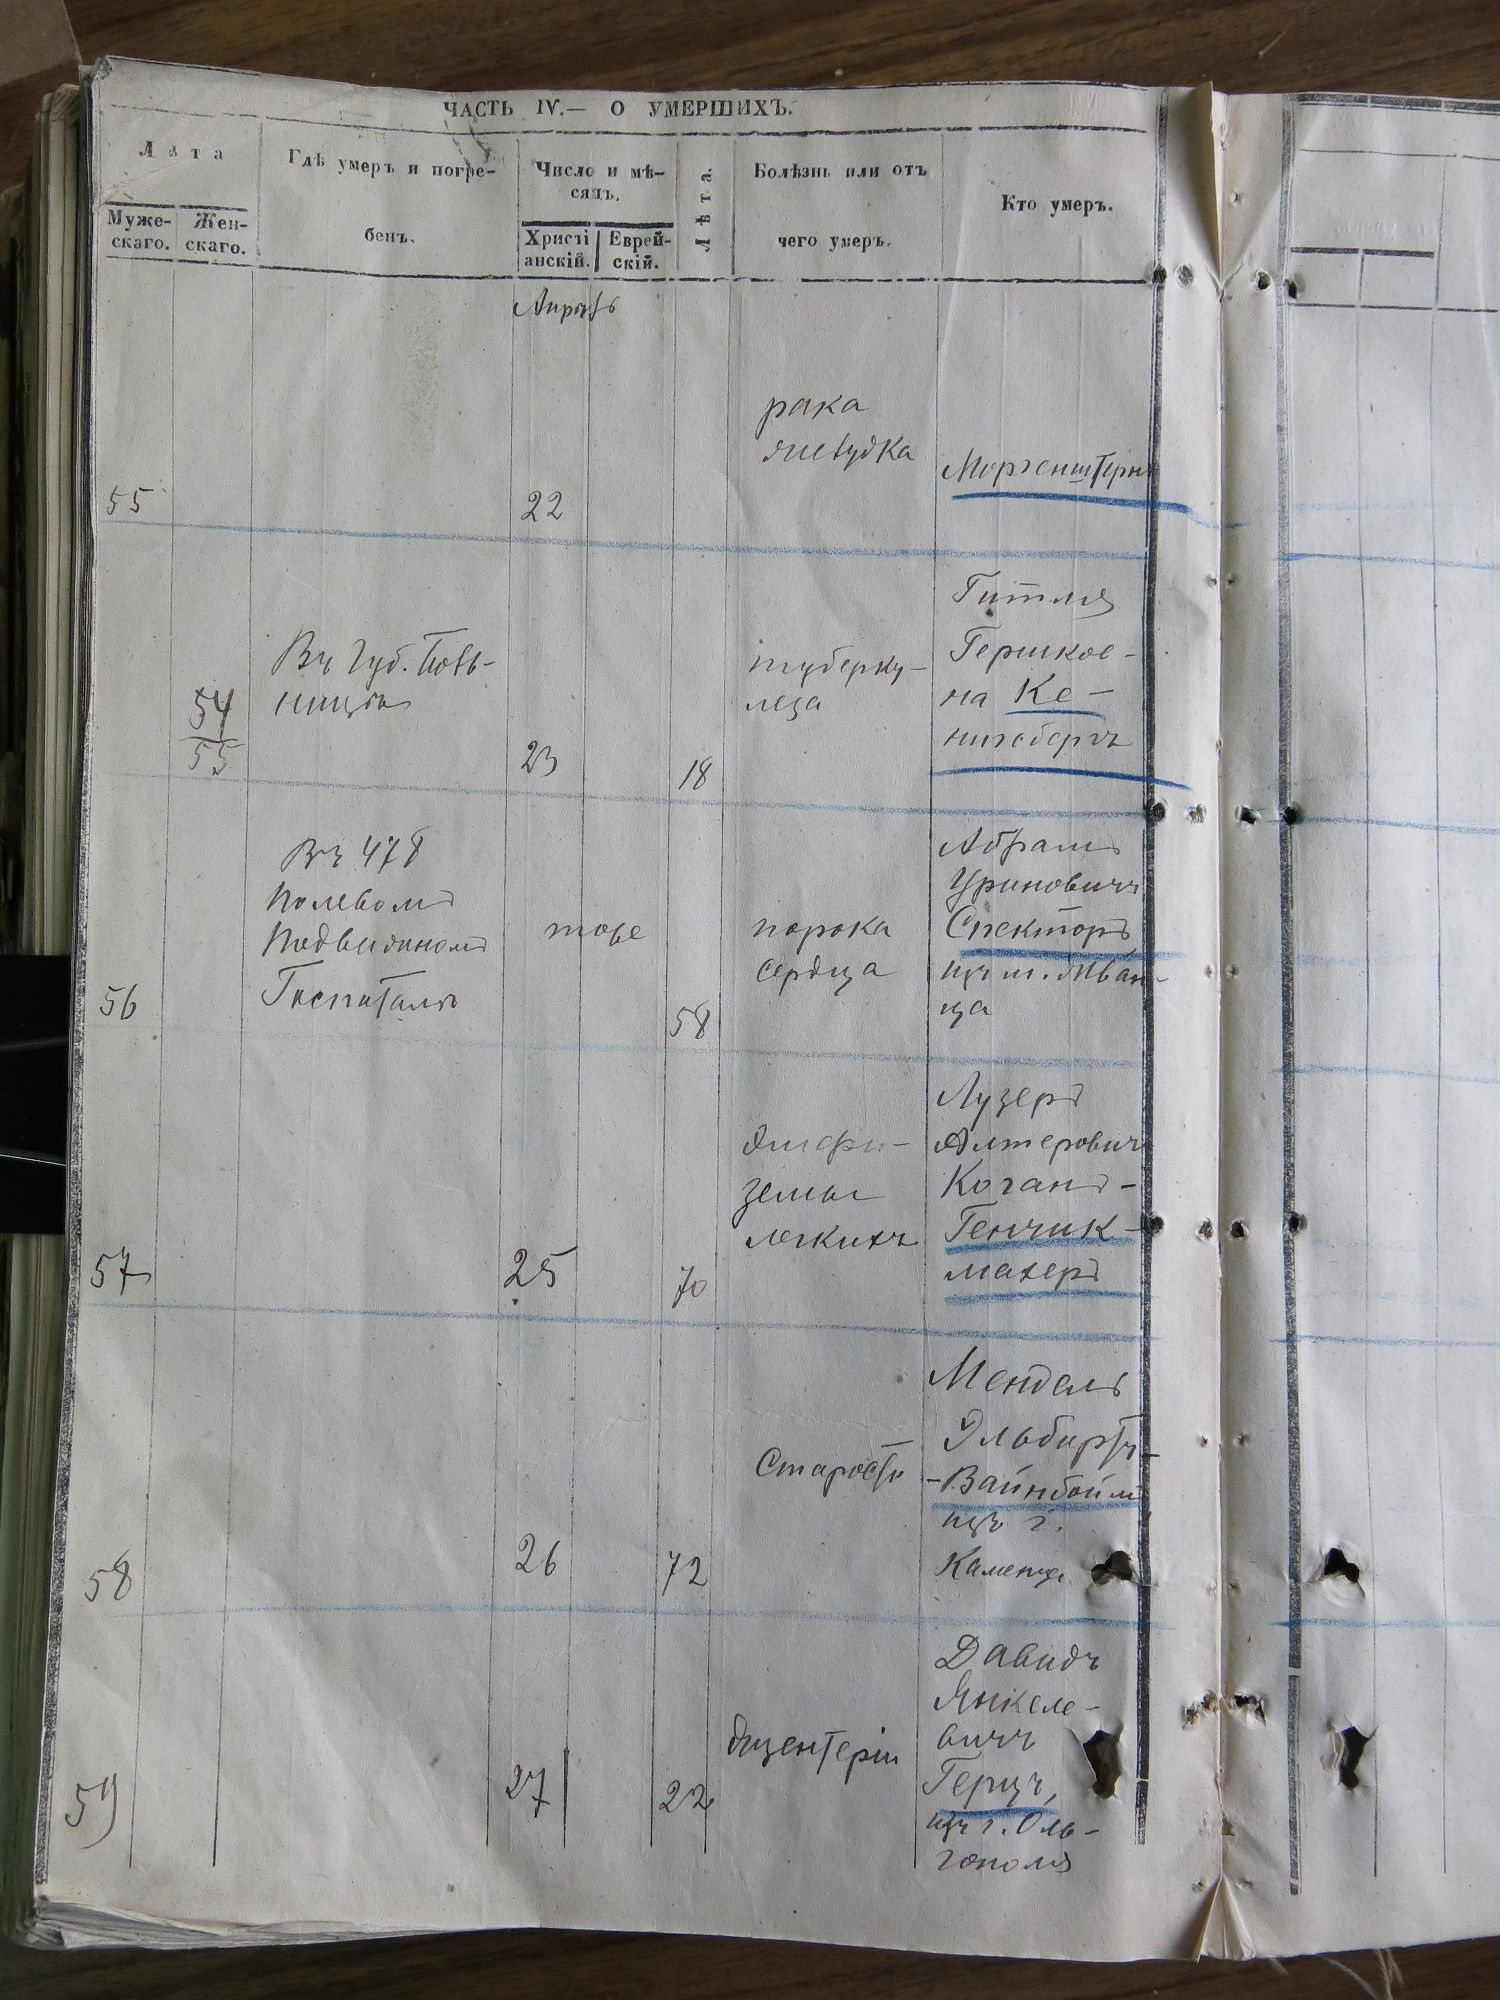 ЧАСТЬ IV.— О УМЕРШИХЪ.
Лѣта
Муже-
скаго.
Жен-
скаго.
Гдѣ умеръ и погре-
бенъ.
Число и мѣ-
сяцъ.
Христі
анскій.
Еврей-
скій.
Лѣта.
Болѣзнь или отъ
чего умеръ.
Кто умеръ.
Апрѣль
55
22
рака
желудка
Моргенштернъ
54
55
Въ Губ. Боль-
ницѣ
23
18
туберку-
леза
Гитля
Гершков-
на Ке-
нигсбергъ
56
Въ 478
Полевомъ
Подвижномъ
Госпиталѣ
тоже
58
порока
сердца
Абрамъ
Уриновичъ
Спекторъ
изъ м. Жван-
ца
57
25
70
эмфи-
земы
легкихъ
Лузеръ
Алтеровичъ
Коганъ-
Генчик-
махеръ
58
26
72
Старость
Мендель
Эльбертъ-
-Вайнбойм
изъ г.
Каменца
59
27
22
дизентеріи
Давидъ
Янкеле-
вичъ
Герцъ,
изъ г. Оль-
гополя